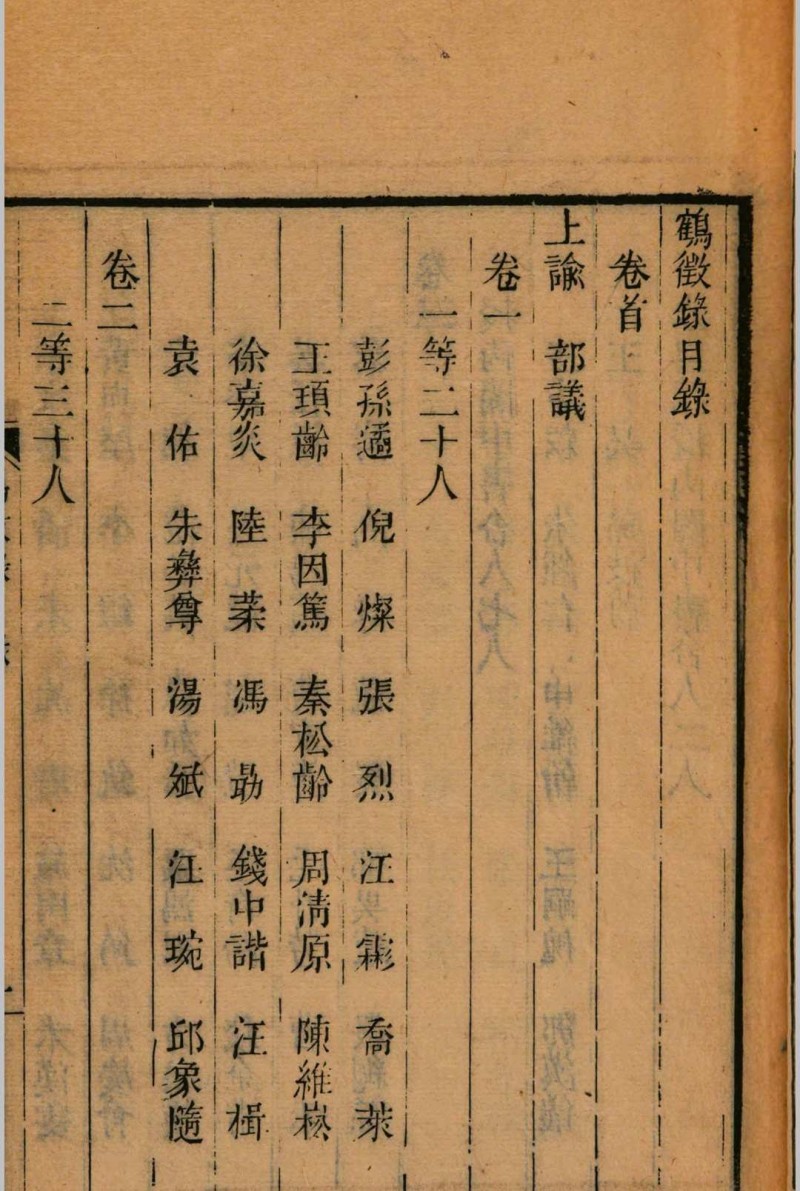 鶴徵錄目錄
卷首
上諭　部議
卷一
一等二十人
彭孫遹　倪　燦　張　烈　汪　霦　喬　萊
王頊齡　李因篤　秦松齡　周淸原　陳維崧
徐嘉炎　陸　葇　馮　勗　錢中諧　汪　楫
袁　佑　朱彝尊　湯　斌　汪　琬　邱象隨
卷二
二等三十人